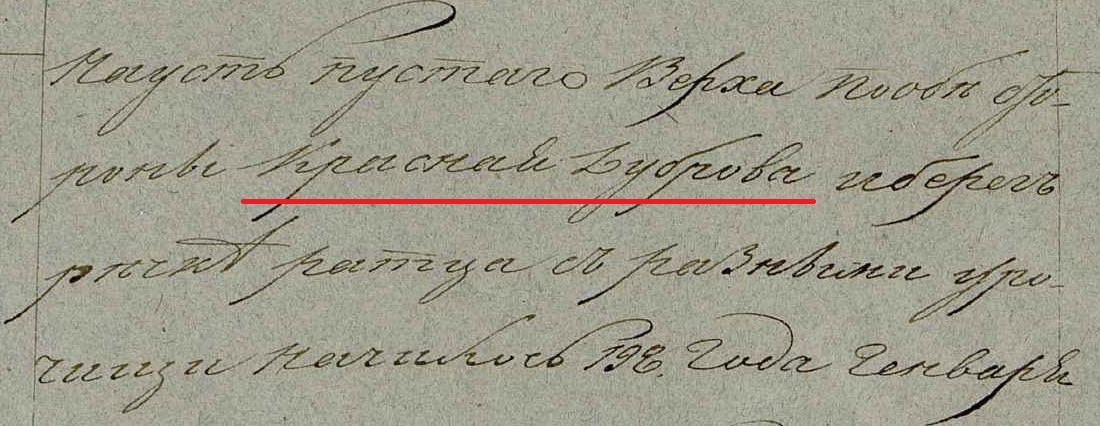 Наусть пустаго Верха пообѣ сто-
роны Красная Дуброва иберегъ
рѣчкѣ ратца съ разными уро-
чищи началось 198. Года Генваря